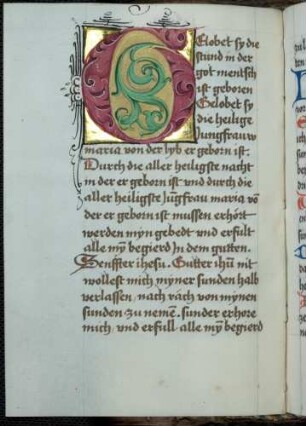 Gelobet sy die
stund in der
got mentsch
ist geboren
Gelobet sy
die heilige
Jungfrauw
maria von der lyb er geborn ist.
Durch die aller heiligste nacht
in der er geborn ist vnd durch die
aller heiligste Jūgfrau maria vō
der er geborn ist mussen erhört
werden myn gebedt vnd erfült
alle mȳ begierd Jn dem gutten.
Senffter ihesu. Gutter ihū nit
wollest mich myner sunden halb
verlassen / nach rach von mynen
sunden zu nemē. sunder erhore
mich / vnd erfüll alle mȳ begierd